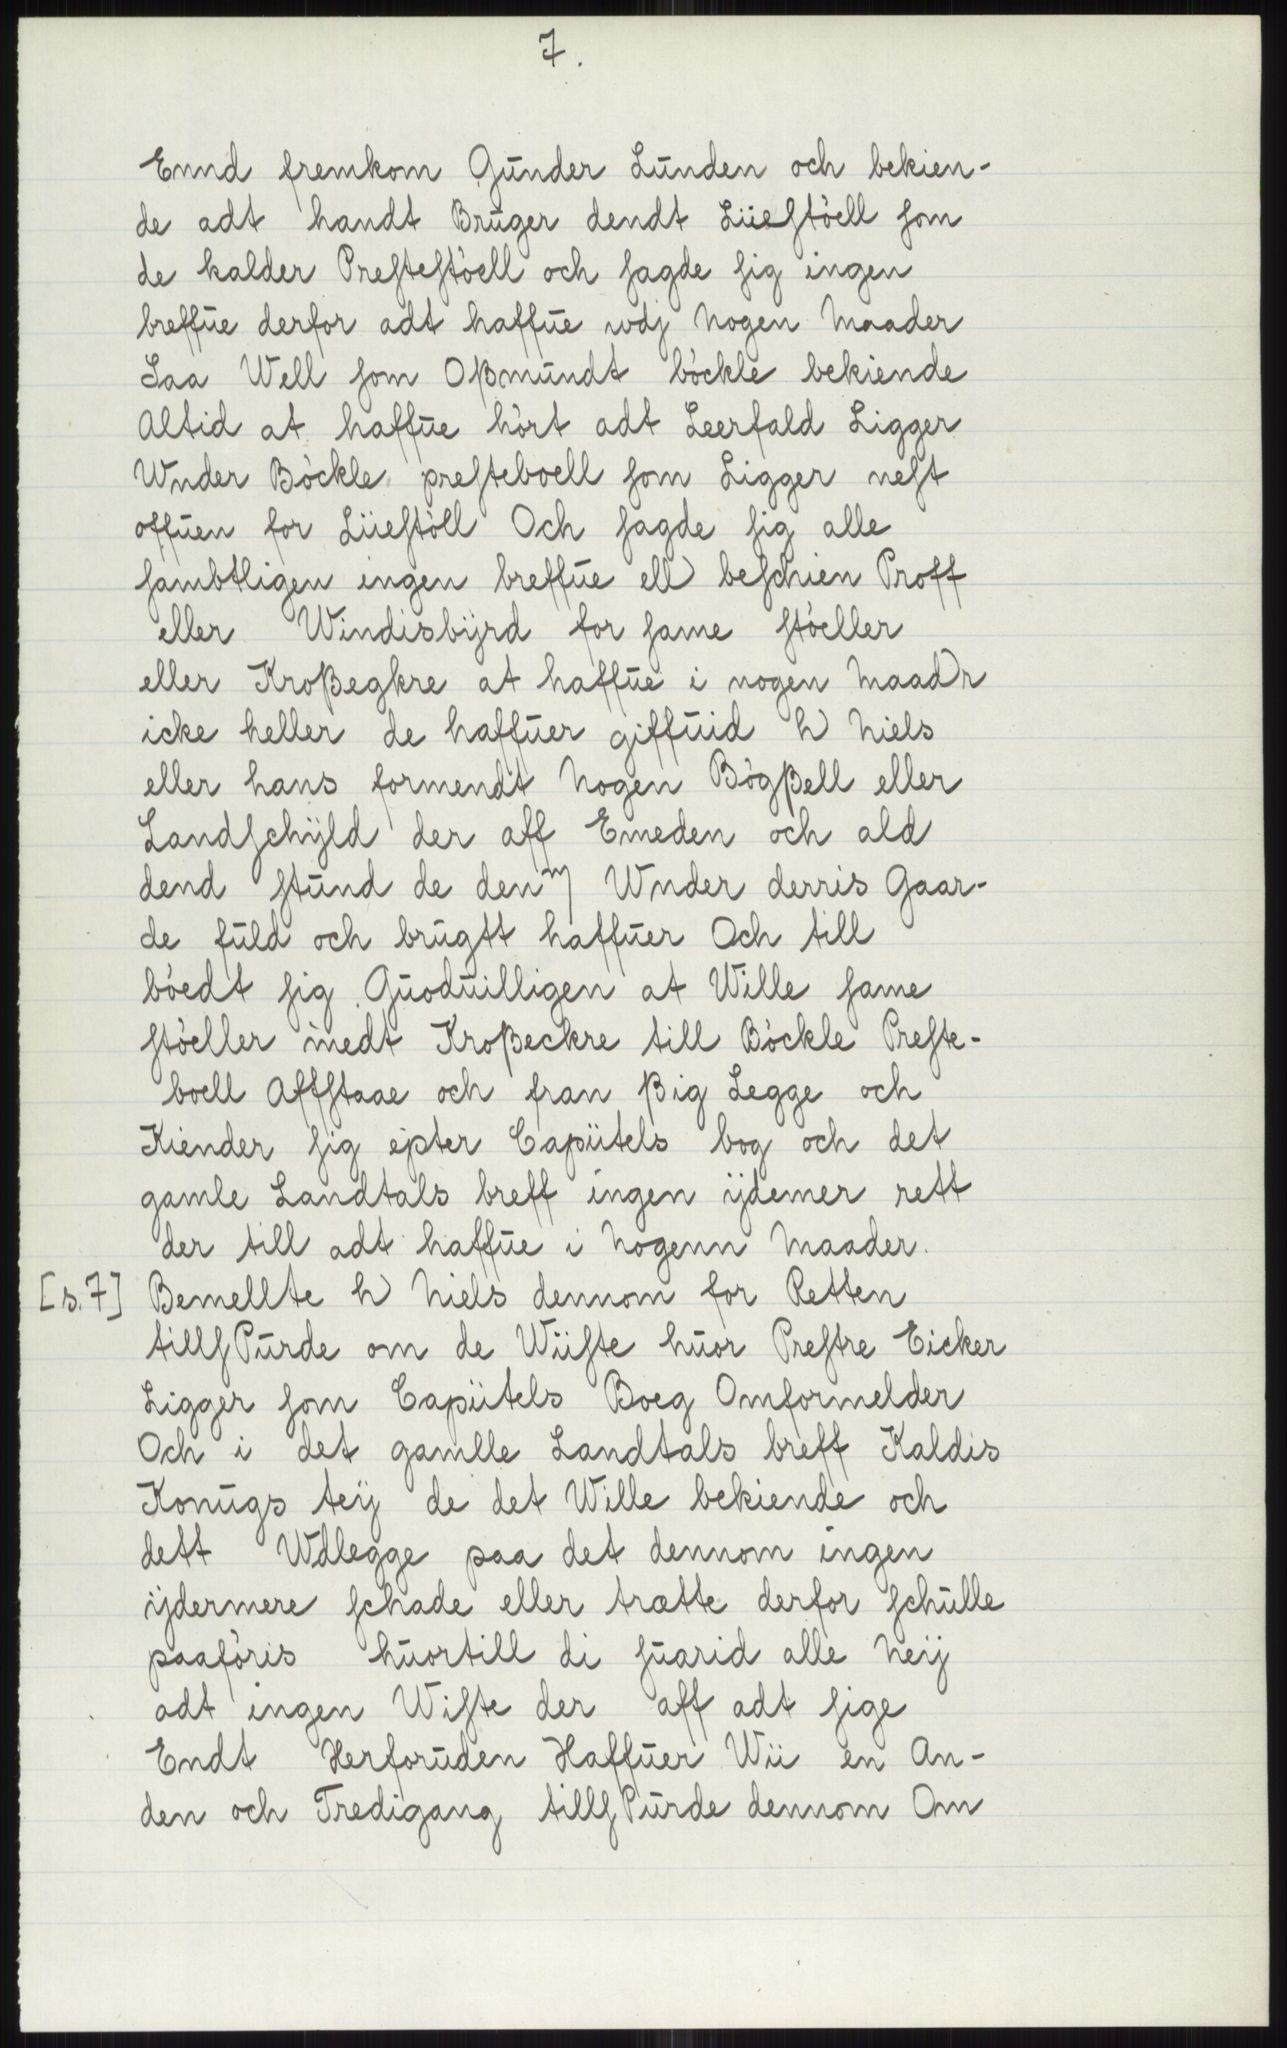 7.
Ennd fremkom Gŭnder Lŭnden och bekien-
de adt handt Brŭger dendt Lüeſtòell ſom
de kalder Preſteſtòell och ſagde ſig ingen
breffŭe derfor adt haffŭe wdj Nogen Maader
Saa Well ſom Oßmŭndt bòckle bekiende
Altid at haffŭe hòrt adt Leerfald Ligger
Wnder Bòckle preſteboell ſom Ligger neſt
offŭen for Lüeſtòll Och ſagde ſig alle
ſambtligen ingen breffŭe ell beſchien Proff
eller Windisbÿrd for ſame ſtòeller
eller Kroßegkre at haffŭe i nogen Maadr
icke heller de haffŭer giffŭid h Niels
eller hans formendt Nogen Bògßell eller
Landſchÿld der aff Emeden och ald
dend ſtŭnd de denm Wnder derris Gaar-
de fŭld och brŭgtt haffŭer Och till
bòedt ſig Gŭodŭilligen at Wille ſame
ſtòeller medt Kroßeckre till Bòckle Preſte-
boell Affſtaae och fran ßig Legge och
Kiender ſig epter Capütels bog och det
gamle Landtals breff ingen ÿdemer rett
der till adt haffŭe i Nogenn Maader.
[s.7] Bemellte h Niels dennom for Retten
tillſPŭrde om de Wüſte hŭor Preſtre Eicker
Ligger ſom Capütels Boeg Omformelder
Och i det gamlle Landtals breff Kaldis
Konŭgs teÿ de det Wille bekiende och
dett Wdlegge paa det dennom ingen
ÿdermere ſchade eller trætte derfor ſchŭlle
paafòris hŭortill di ſŭarid alle Neÿ
adt ingen Wiſte der aff adt ſige
Endt Herforŭden Haffŭer Wü en An-
den och Tredigang tillſPŭrde dennom Om